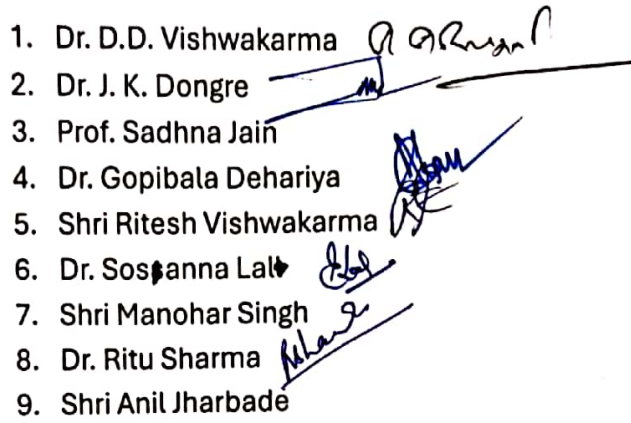 1. Dr. D.D. Vishwakarma
2. Dr. J. K. Dongre
3. Prof. Sadhna Jain
4. Dr. Gopibala Dehariya
5. Shri Ritesh Vishwakarma
6. Dr. Sosanna Lal
7. Shri Manohar Singh
8. Dr. Ritu Sharma
9. Shri Anil Jharbade